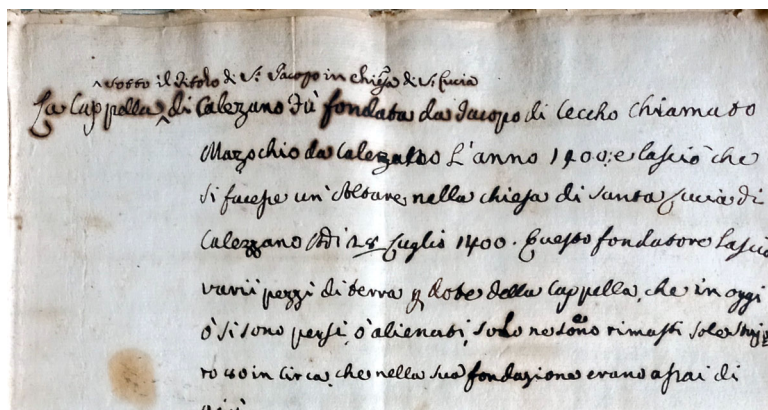 sotto il titolo di S. Jacopo in chiesa di S. Lucia
La Cappella di Calezano fù fondata da Jacopo di Ceccho chiamato
Mazochio da Calezano L'anno 1400: e lasciò che
si facesse un Altare nella chiesa di Santa Lucia di
Calezzano Adi 28 Luglio 1400. Questo fondatore lasciò
varii pezzi di terra p dote della Cappella, che in oggi
ò si sono persi, ò alienati, solo ne sono rimasti sole
ro 80 in circa, che nella sua fondazione erano assai di
più